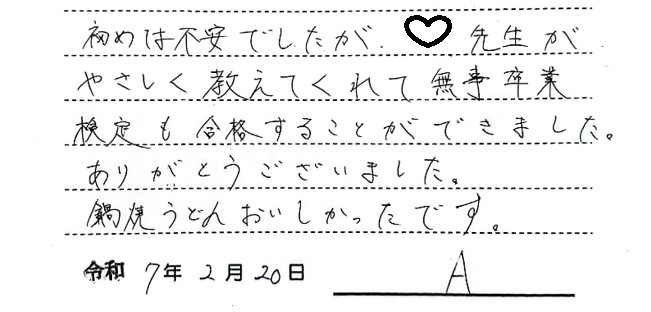 初めは不安でしたが、♡先生が
やさしく教えてくれて無事卒業
検定も合格することができました。
ありがとうございました。
鍋焼うどんおいしかったです。
令和 7年 2月 20日 A